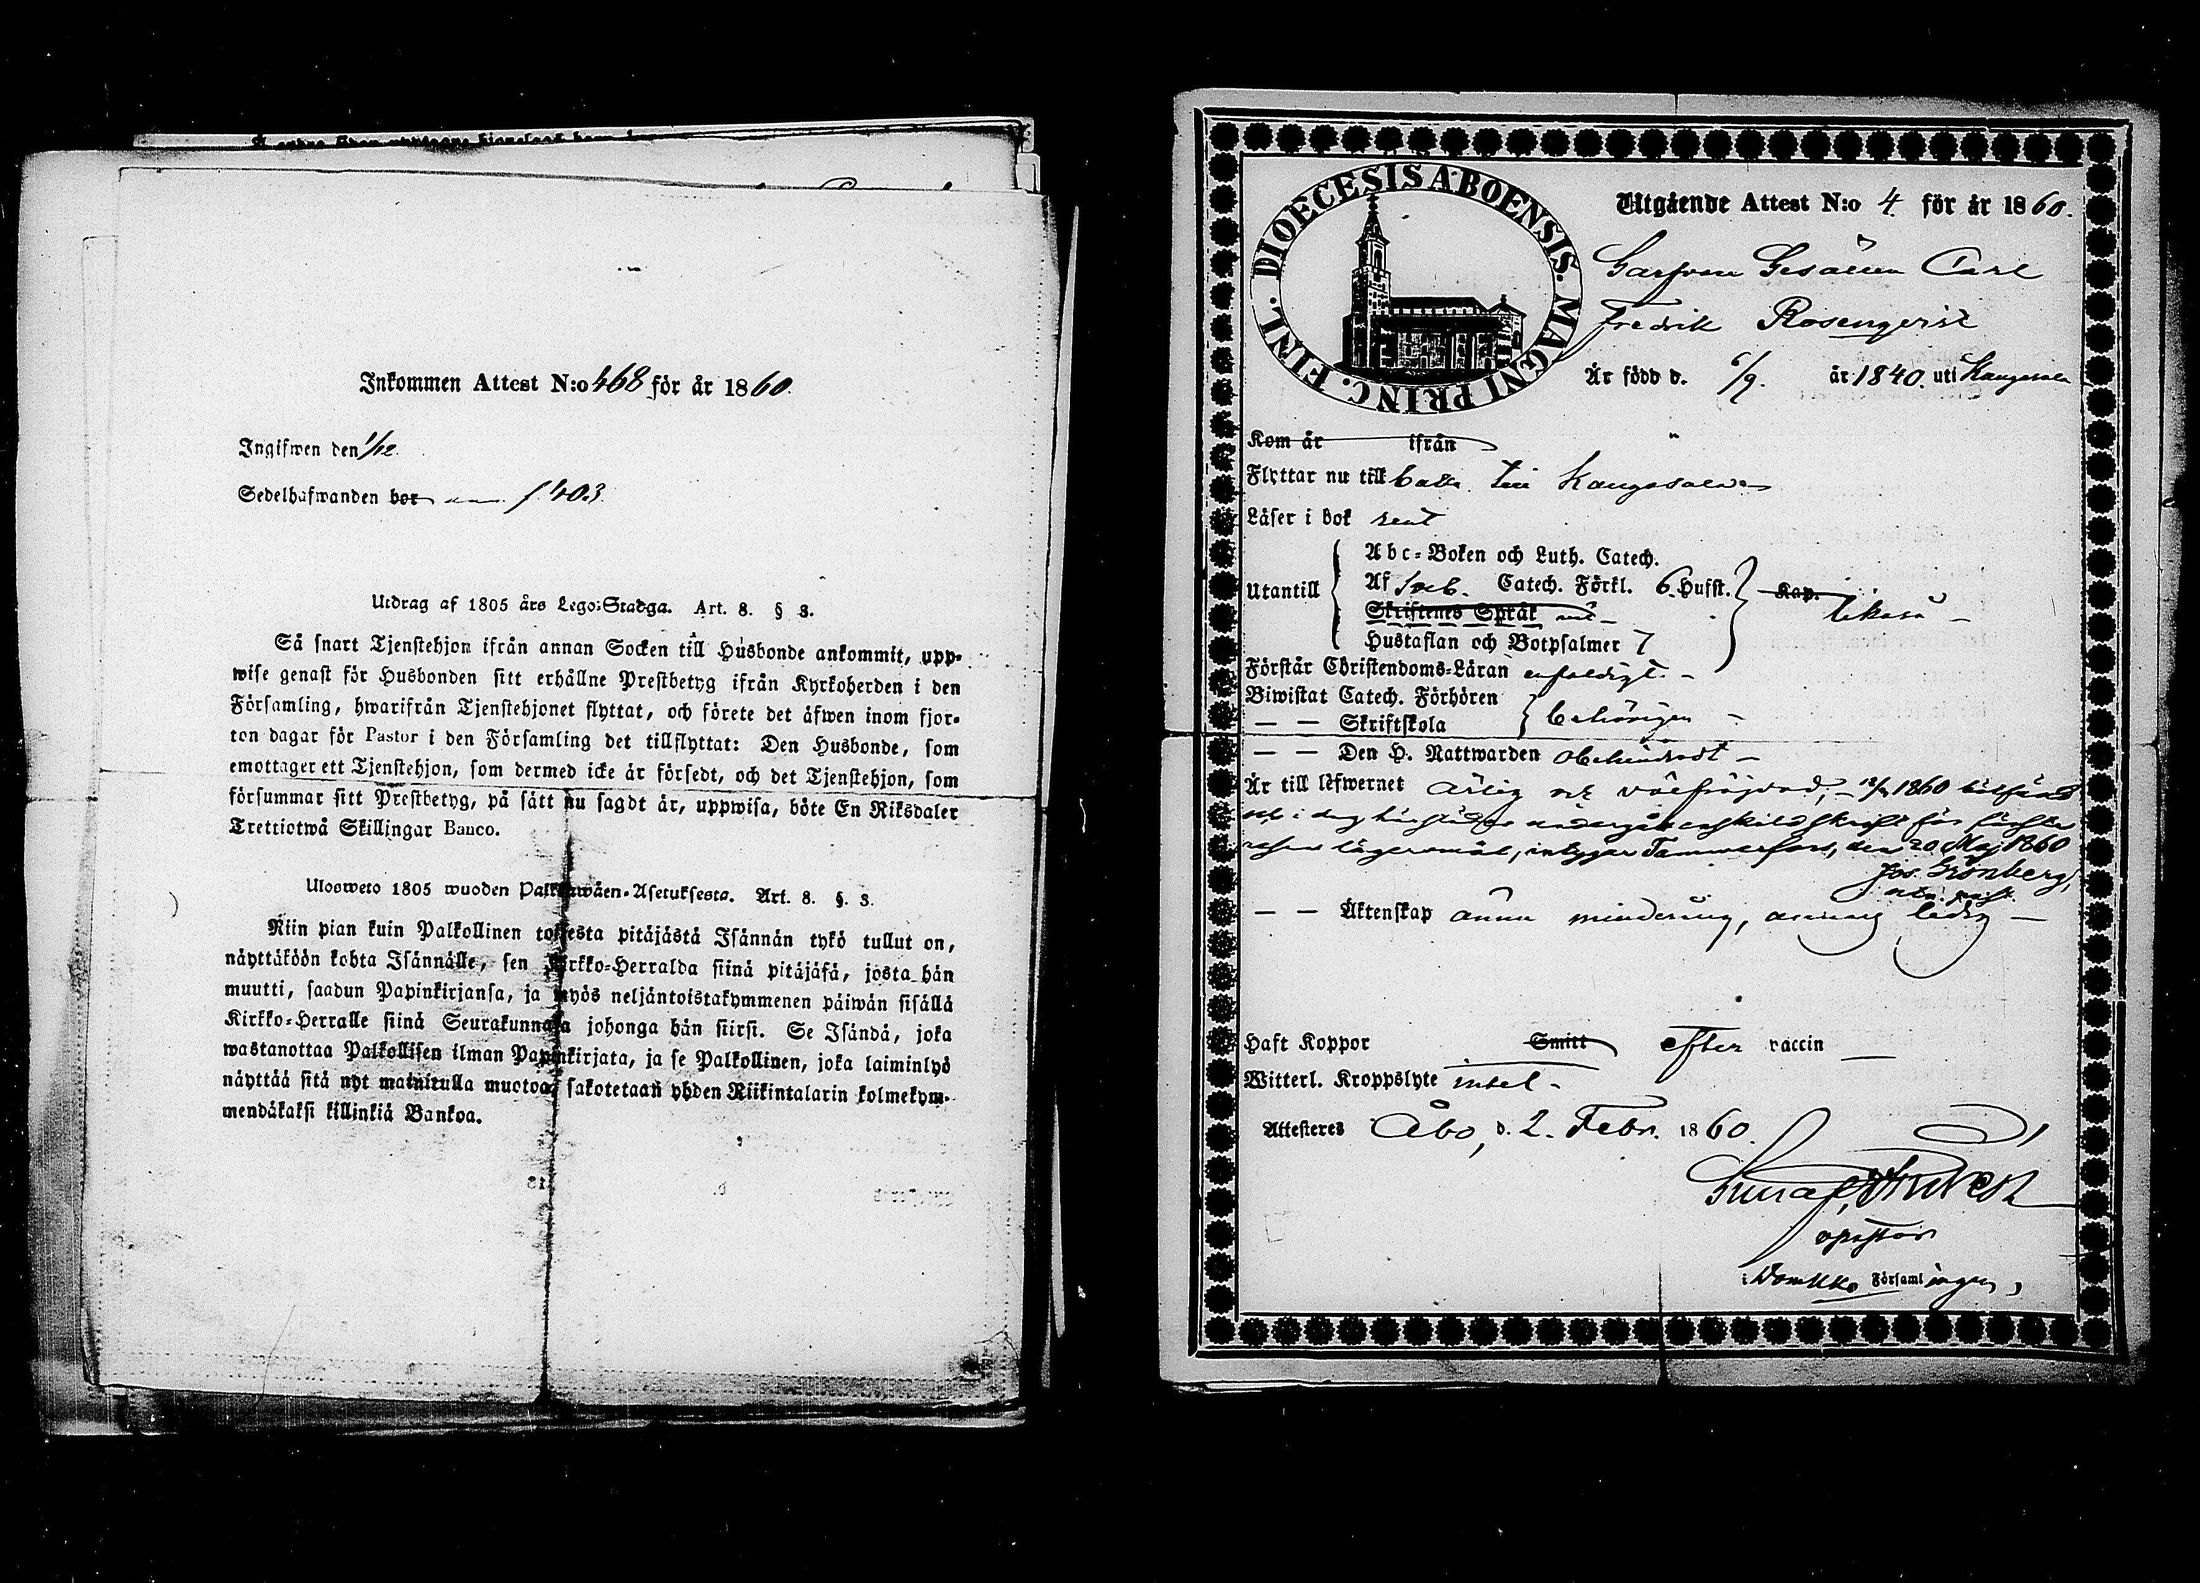 Inkommen Attest N:o 468 för år 1860.
Ingifwen den 1/12
Sedelhafwanden bor f 403.
Utdrag af 1805 års Lego-Stadga. Art. 8. § 3.
Så snart Tjenstehjon ifrån annan Socken till Husbonde ankommit, upp-
wise genast för Husbonden sitt erhållne Prestbetyg ifrån Kyrkoherden i den
Församling, hwarifrån Tjenstehjonet flyttat, och förete det äfwen inom fjor-
ton dagar för Pastor i den Församling det tillflyttat: Den Husbonde, som
emottager ett Tjenstehjon, som dermed icke är försedt, och det Tjenstehjon, som
försummar sitt Prestbetyg, på sätt nu sagdt är, uppwisa, böte En Riksdaler
Trettiotwå Skillingar Banco.
Ulosweto 1805 wuoden Palkkawäen-Asetuksesta. Art. 8. §. 3.
Niin pian kuin Palkollinen toisesta pitäjästä Isännän tykö tullut on,
näyttäköön kohta Isännälle, sen Kirkko-Herralda siinä pitäjäsä, josta hän
muutti, saadun Papinkirjansa, ja myös neljäntoistakymmenen päiwän sisällä
Kirkko-Herralle siinä Seurakunnasa johonga hän siirsi. Se Isändä, joka
wastanottaa Palkollisen ilman Papinkirjata, ja se Palkollinen, joka laiminlyö
näyttää sitä nyt mainitulla muotoa, sakotetaan yhden Riikintalarin kolmekym-
mendäkaksi killinkiä Bankoa.
DIOECESIS ABOENSIS. MAGNI PRINC. FINL.
Utgående Attest N:o 4 för år 1860.
Garfvare Gesällen Carl
Fredrik Rosenqvist
Är född d. 6/9. år 1840. uti Kangasala
Kom år ifrån
Flyttar nu till Kangasala
Läser i bok rent
Abc-Boken och Luth. Catech.
Utantill Af Sveb. Catech. Förkl. 6. Hufst. Kap.
Skriftenes Språk
Hustaflan och Botpsalmer 7
Förstår Christendoms-Läran enfaldigt.
Biwistat Catech. Förhören
— — Skriftskola behörigen
— — Den H. Nattwarden obehindradt
Är till lefwernet ärlig och välfrejdad, 1860
lägersmål, intygar Tammerfors, den 20 Maj 1860
Jos. Grönberg,
— — Äktenskap ännu minderårig, ledig
Haft Koppor Smitt efter vaccin
Witterl. Kroppslyte intet
Attesteres Åbo, d. 2. Febr. 1860.
i Domkko Församlingen,